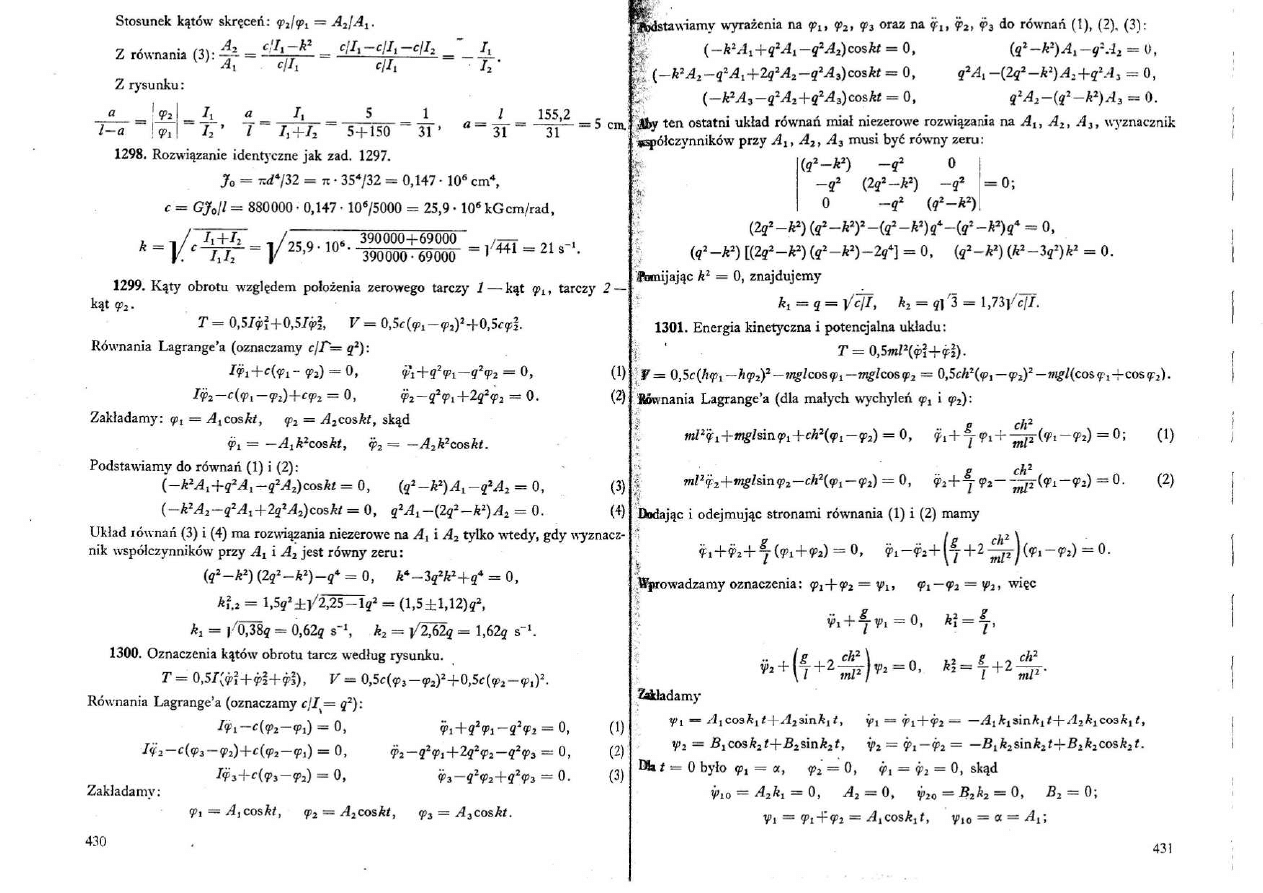 Stosunek kątów skręceń: φ₂/φ₁ = A₂/A₁.
Z równania (3): A₂/A₁ = (c/I₁−k²)/(c/I₁) = (c/I₁−c/I₁−c/I₂)/(c/I₁) = −I₁/I₂.
Z rysunku:
a/(l−a) = |φ₂/φ₁| = I₁/I₂, a/l = I₁/(I₁+I₂) = 5/(5+150) = 1/31, a = l/31 = 155,2/31 = 5 cm.
1298. Rozwiązanie identyczne jak zad. 1297.
J₀ = πd⁴/32 = π · 35⁴/32 = 0,147 · 10⁶ cm⁴,
c = GJ₀/l = 880000 · 0,147 · 10⁶/5000 = 25,9 · 10⁶ kGcm/rad,
k = √(c (I₁+I₂)/(I₁I₂)) = √(25,9 · 10⁶ · (390000+69000)/(390000 · 69000)) = √441 = 21 s⁻¹.
1299. Kąty obrotu względem położenia zerowego tarczy 1 — kąt φ₁, tarczy 2 —
kąt φ₂.
T = 0,5Iφ̇₁²+0,5Iφ̇₂², V = 0,5c(φ₁−φ₂)²+0,5cφ₂².
Równania Lagrange'a (oznaczamy c/I = q²):
Iφ̈₁+c(φ₁− φ₂) = 0, φ̈₁+q²φ₁−q²φ₂ = 0, (1)
Iφ̈₂−c(φ₁−φ₂)+cφ₂ = 0, φ̈₂−q²φ₁+2q²φ₂ = 0. (2)
Zakładamy: φ₁ = A₁coskt, φ₂ = A₂coskt, skąd
φ̈₁ = −A₁k²coskt, φ̈₂ = −A₂k²coskt.
Podstawiamy do równań (1) i (2):
(−k²A₁+q²A₁−q²A₂)coskt = 0, (q²−k²)A₁−q²A₂ = 0, (3)
(−k²A₂−q²A₁+2q²A₂)coskt = 0, q²A₁−(2q²−k²)A₂ = 0. (4)
Układ równań (3) i (4) ma rozwiązania niezerowe na A₁ i A₂ tylko wtedy, gdy wyznacz-
nik współczynników przy A₁ i A₂ jest równy zeru:
(q²−k²)(2q²−k²)−q⁴ = 0, k⁴−3q²k²+q⁴ = 0,
k²₁,₂ = 1,5q²±√(2,25−1)q² = (1,5±1,12)q²,
k₁ = √0,38q = 0,62q s⁻¹, k₂ = √2,62q = 1,62q s⁻¹.
1300. Oznaczenia kątów obrotu tarcz według rysunku.
T = 0,5I(φ̇₁²+φ̇₂²+φ̇₃²), V = 0,5c(φ₃−φ₂)²+0,5c(φ₂−φ₁)².
Równania Lagrange'a (oznaczamy c/I = q²):
Iφ̈₁−c(φ₂−φ₁) = 0, φ̈₁+q²φ₁−q²φ₂ = 0, (1)
Iφ̈₂−c(φ₃−φ₂)+c(φ₂−φ₁) = 0, φ̈₂−q²φ₁+2q²φ₂−q²φ₃ = 0, (2)
Iφ̈₃+c(φ₃−φ₂) = 0, φ̈₃−q²φ₂+q²φ₃ = 0. (3)
Zakładamy:
φ₁ = A₁coskt, φ₂ = A₂coskt, φ₃ = A₃coskt.
430
Podstawiamy wyrażenia na φ₁, φ₂, φ₃ oraz na φ̈₁, φ̈₂, φ̈₃ do równań (1), (2), (3):
(−k²A₁+q²A₁−q²A₂)coskt = 0, (q²−k²)A₁−q²A₂ = 0,
(−k²A₂−q²A₁+2q²A₂−q²A₃)coskt = 0, q²A₁−(2q²−k²)A₂+q²A₃ = 0,
(−k²A₃−q²A₂+q²A₃)coskt = 0, q²A₂−(q²−k²)A₃ = 0.
Aby ten ostatni układ równań miał niezerowe rozwiązania na A₁, A₂, A₃, wyznacznik
współczynników przy A₁, A₂, A₃ musi być równy zeru:
|(q²−k²) −q² 0 |
|−q² (2q²−k²) −q²| = 0;
|0 −q² (q²−k²)|
(2q²−k²)(q²−k²)²−(q²−k²)q⁴−(q²−k²)q⁴ = 0,
(q²−k²)[(2q²−k²)(q²−k²)−2q⁴] = 0, (q²−k²)(k²−3q²)k² = 0.
Pomijając k² = 0, znajdujemy
k₁ = q = √c/I, k₂ = q√3 = 1,73√c/I.
1301. Energia kinetyczna i potencjalna układu:
T = 0,5ml²(φ̇₁²+φ̇₂²).
V = 0,5c(hφ₁−hφ₂)²−mglcosφ₁−mglcosφ₂ = 0,5ch²(φ₁−φ₂)²−mgl(cosφ₁+cosφ₂).
Równania Lagrange'a (dla małych wychyleń φ₁ i φ₂):
ml²φ̈₁+mglsinφ₁+ch²(φ₁−φ₂) = 0, φ̈₁+(g/l)φ₁+(ch²/ml²)(φ₁−φ₂) = 0; (1)
ml²φ̈₂+mglsinφ₂−ch²(φ₁−φ₂) = 0, φ̈₂+(g/l)φ₂−(ch²/ml²)(φ₁−φ₂) = 0. (2)
Dodając i odejmując stronami równania (1) i (2) mamy
φ̈₁+φ̈₂+(g/l)(φ₁+φ₂) = 0, φ̈₁−φ̈₂+(g/l+2 ch²/ml²)(φ₁−φ₂) = 0.
Wprowadzamy oznaczenia: φ₁+φ₂ = ψ₁, φ₁−φ₂ = ψ₂, więc
ψ̈₁+(g/l)ψ₁ = 0, k₁² = g/l,
ψ̈₂+(g/l+2 ch²/ml²)ψ₂ = 0, k₂² = g/l+2 ch²/ml².
Zakładamy
ψ₁ = A₁cosk₁t+A₂sink₁t, ψ̇₁ = φ̇₁+φ̇₂ = −A₁k₁sink₁t+A₂k₁cosk₁t,
ψ₂ = B₁cosk₂t+B₂sink₂t, ψ̇₂ = φ̇₁−φ̇₂ = −B₁k₂sink₂t+B₂k₂cosk₂t.
Dla t = 0 było φ₁ = α, φ₂ = 0, φ̇₁ = φ̇₂ = 0, skąd
ψ̇₁₀ = A₂k₁ = 0, A₂ = 0, ψ̇₂₀ = B₂k₂ = 0, B₂ = 0;
ψ₁ = φ₁+φ₂ = A₁cosk₁t, ψ₁₀ = α = A₁;
431